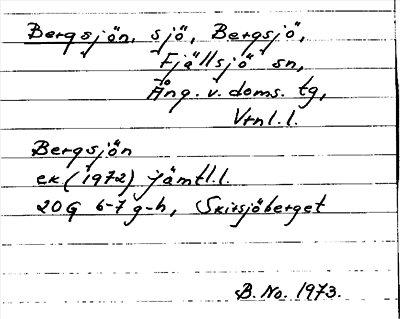 Bergsjön, sjö, Bergsjö,
Fjällsjö sn,
Ång. v. doms. tg,
Vtnl.l.
Bergsjön
ek (1972) Jämtl.l.
20G 6-7 g-h, Skirsjöberget
B. No. 1973.